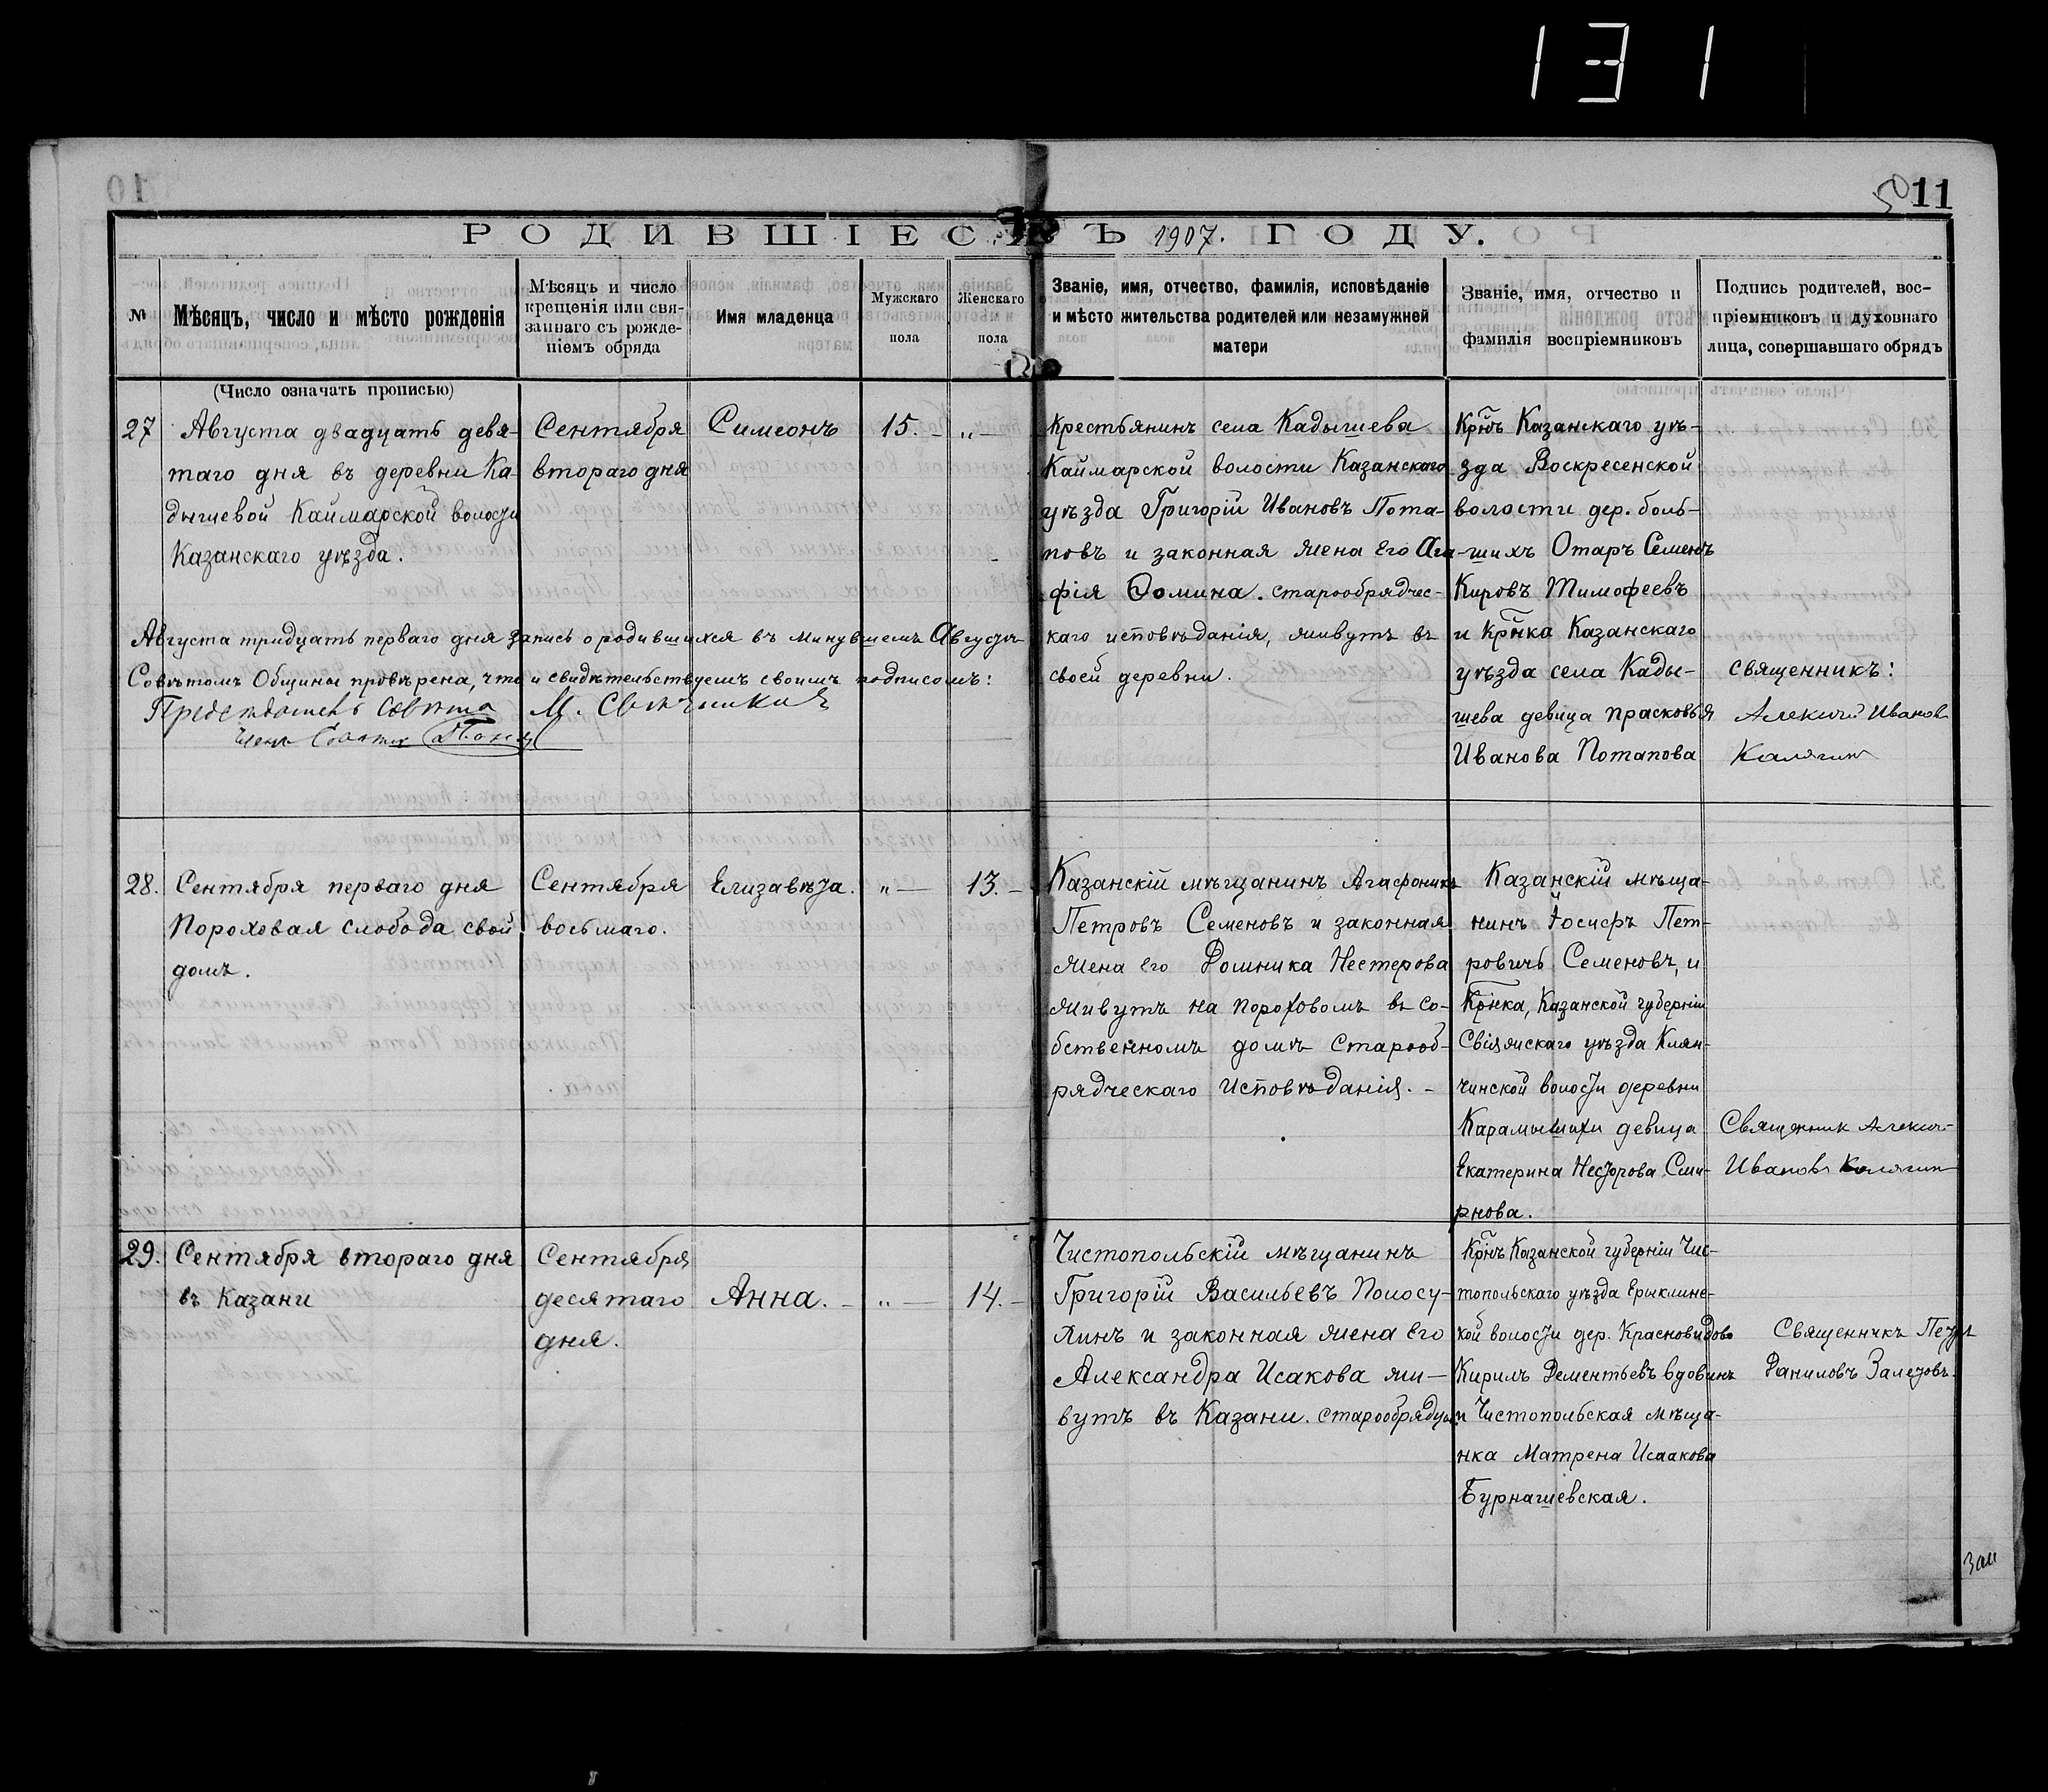 131
50 11
РОДИВШІЕСЯ ВЪ 1907. ГОДУ.
№
Мѣсяцъ, число и мѣсто рожденія
Мѣсяцъ и число
крещенія или свя-
заннаго съ рожде-
ніемъ обряда
Имя младенца
Мужскаго
пола
Женскаго
пола
Званіе, имя, отчество, фамилія, исповѣданіе
и мѣсто жительства родителей или незамужней
матери
Званіе, имя, отчество и
фамилія воспріемниковъ
Подпись родителей, вос-
пріемниковъ и духовнаго
лица, совершавшаго обрядъ
(Число означать прописью)
27
Августа двадцать девя-
таго дня въ деревни Ка-
дышевой Каймарской волости
Казанскаго уѣзда.
Сентября
втораго дня
Симеонъ
15. -
„ -
Крестьянинъ села Кадышева
Каймарской волости Казанскаго
уѣзда Григорій Ивановъ Пота-
повъ и законная жена его Ага-
фія Фомина. старообрядчес-
каго исповѣданія, живутъ въ
своей деревни.
Крнъ Казанскаго уѣ-
зда Воскресенской
волости дер. боль-
шихъ Отаръ Семенъ
Кировъ Тимофеевъ
и Крнка Казанскаго
уѣзда села Кады-
шева девица Прасковья
Иванова Потапова
священникъ:
Алексий Иванов
Калягин
Августа тридцать перваго дня запись о родившихся въ минувшемъ Августѣ
Совѣтомъ Общины провѣрена, что и свидѣтельствуемъ своимъ подписомъ:
Председатель Совѣта М.
Члени Совѣта
28.
Сентября перваго дня
Пороховая слобода, свой
домъ.
Сентября
восьмаго.
Елизавѣта.
„ —
13. -
Казанскій мѣщанинъ Агафоникъ
Петровъ Семеновъ и законная
жена его Домника Нестерова
живутъ на пороховомъ въ со-
бственномъ домѣ старооб-
рядческаго исповѣданія. -
Казанскій мѣща-
нинъ Іосифъ Пет-
ровичъ Семеновъ, и
Крнка, Казанской губерніи
Свіяжскаго уѣзда Клян-
чинской волости деревни
Карамышихи девица
Екатерина Несторова Сми-
рнова.
Священник Алекси-
Иванов Калягин
29.
Сентября втораго дня
въ Казани
Сентября
десятаго
дня.
Анна. -
„ —
14. -
Чистопольскій мѣщанинъ
Григорій Васильевъ Полосу-
хинъ и законная жена его
Александра Исакова жи-
вутъ въ Казани. старообрядцы.
Крнъ Казанской губерніи Чис-
топольскаго уѣзда Ерыклинс-
кой волости дер. Красновидово
Кирилъ Дементьевъ Вдовинъ
и Чистопольская мѣща-
нка Матрена Исаакова
Бурнашевская.
Священникъ Петръ
Даниловъ Залетовъ.
Зап